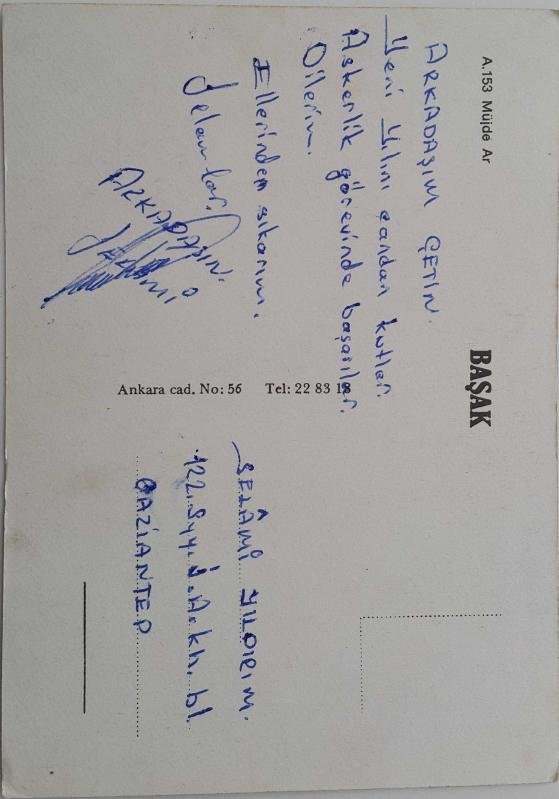 A.153 Müjde Ar
ARKADAŞIM ÇETİN.
Yeni Yılını candan kutlar.
Askerlik görevinde başarılar.
Dilerim.
Ellerinden sıkarım.
Selamlar.
ARKADAŞIN.
BAŞAK
Ankara cad. No: 56 Tel: 22 83 18
SELÂMİ YILDIRIM.
122. Syy. bl.
GAZİANTEP